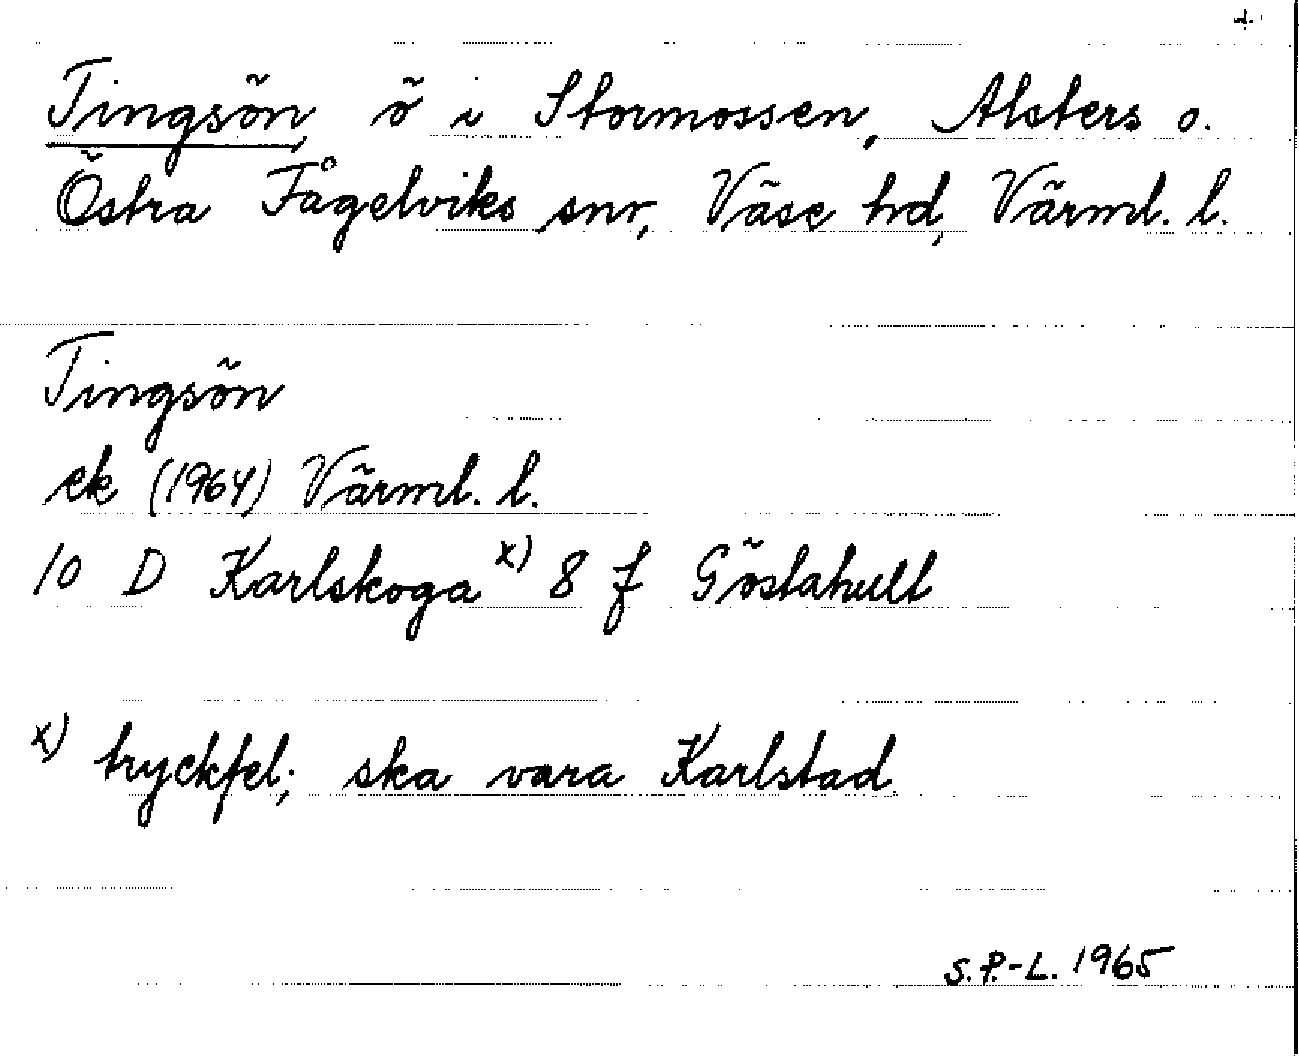 Tingsön, ö i Stormossen, Alsters o.
Östra Fågelviks snr, Väse hd, Värml. l.
Tingsön
ek (1964) Värml. l.
10 D Karlskoga x) 8 f Göstahult
x) tryckfel; ska vara Karlstad.
S.P.-L. 1965